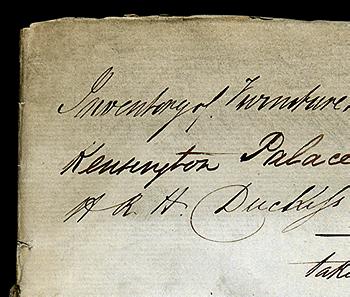 Inventory of Furniture
Kensington Palace
H R H. Duchess
take